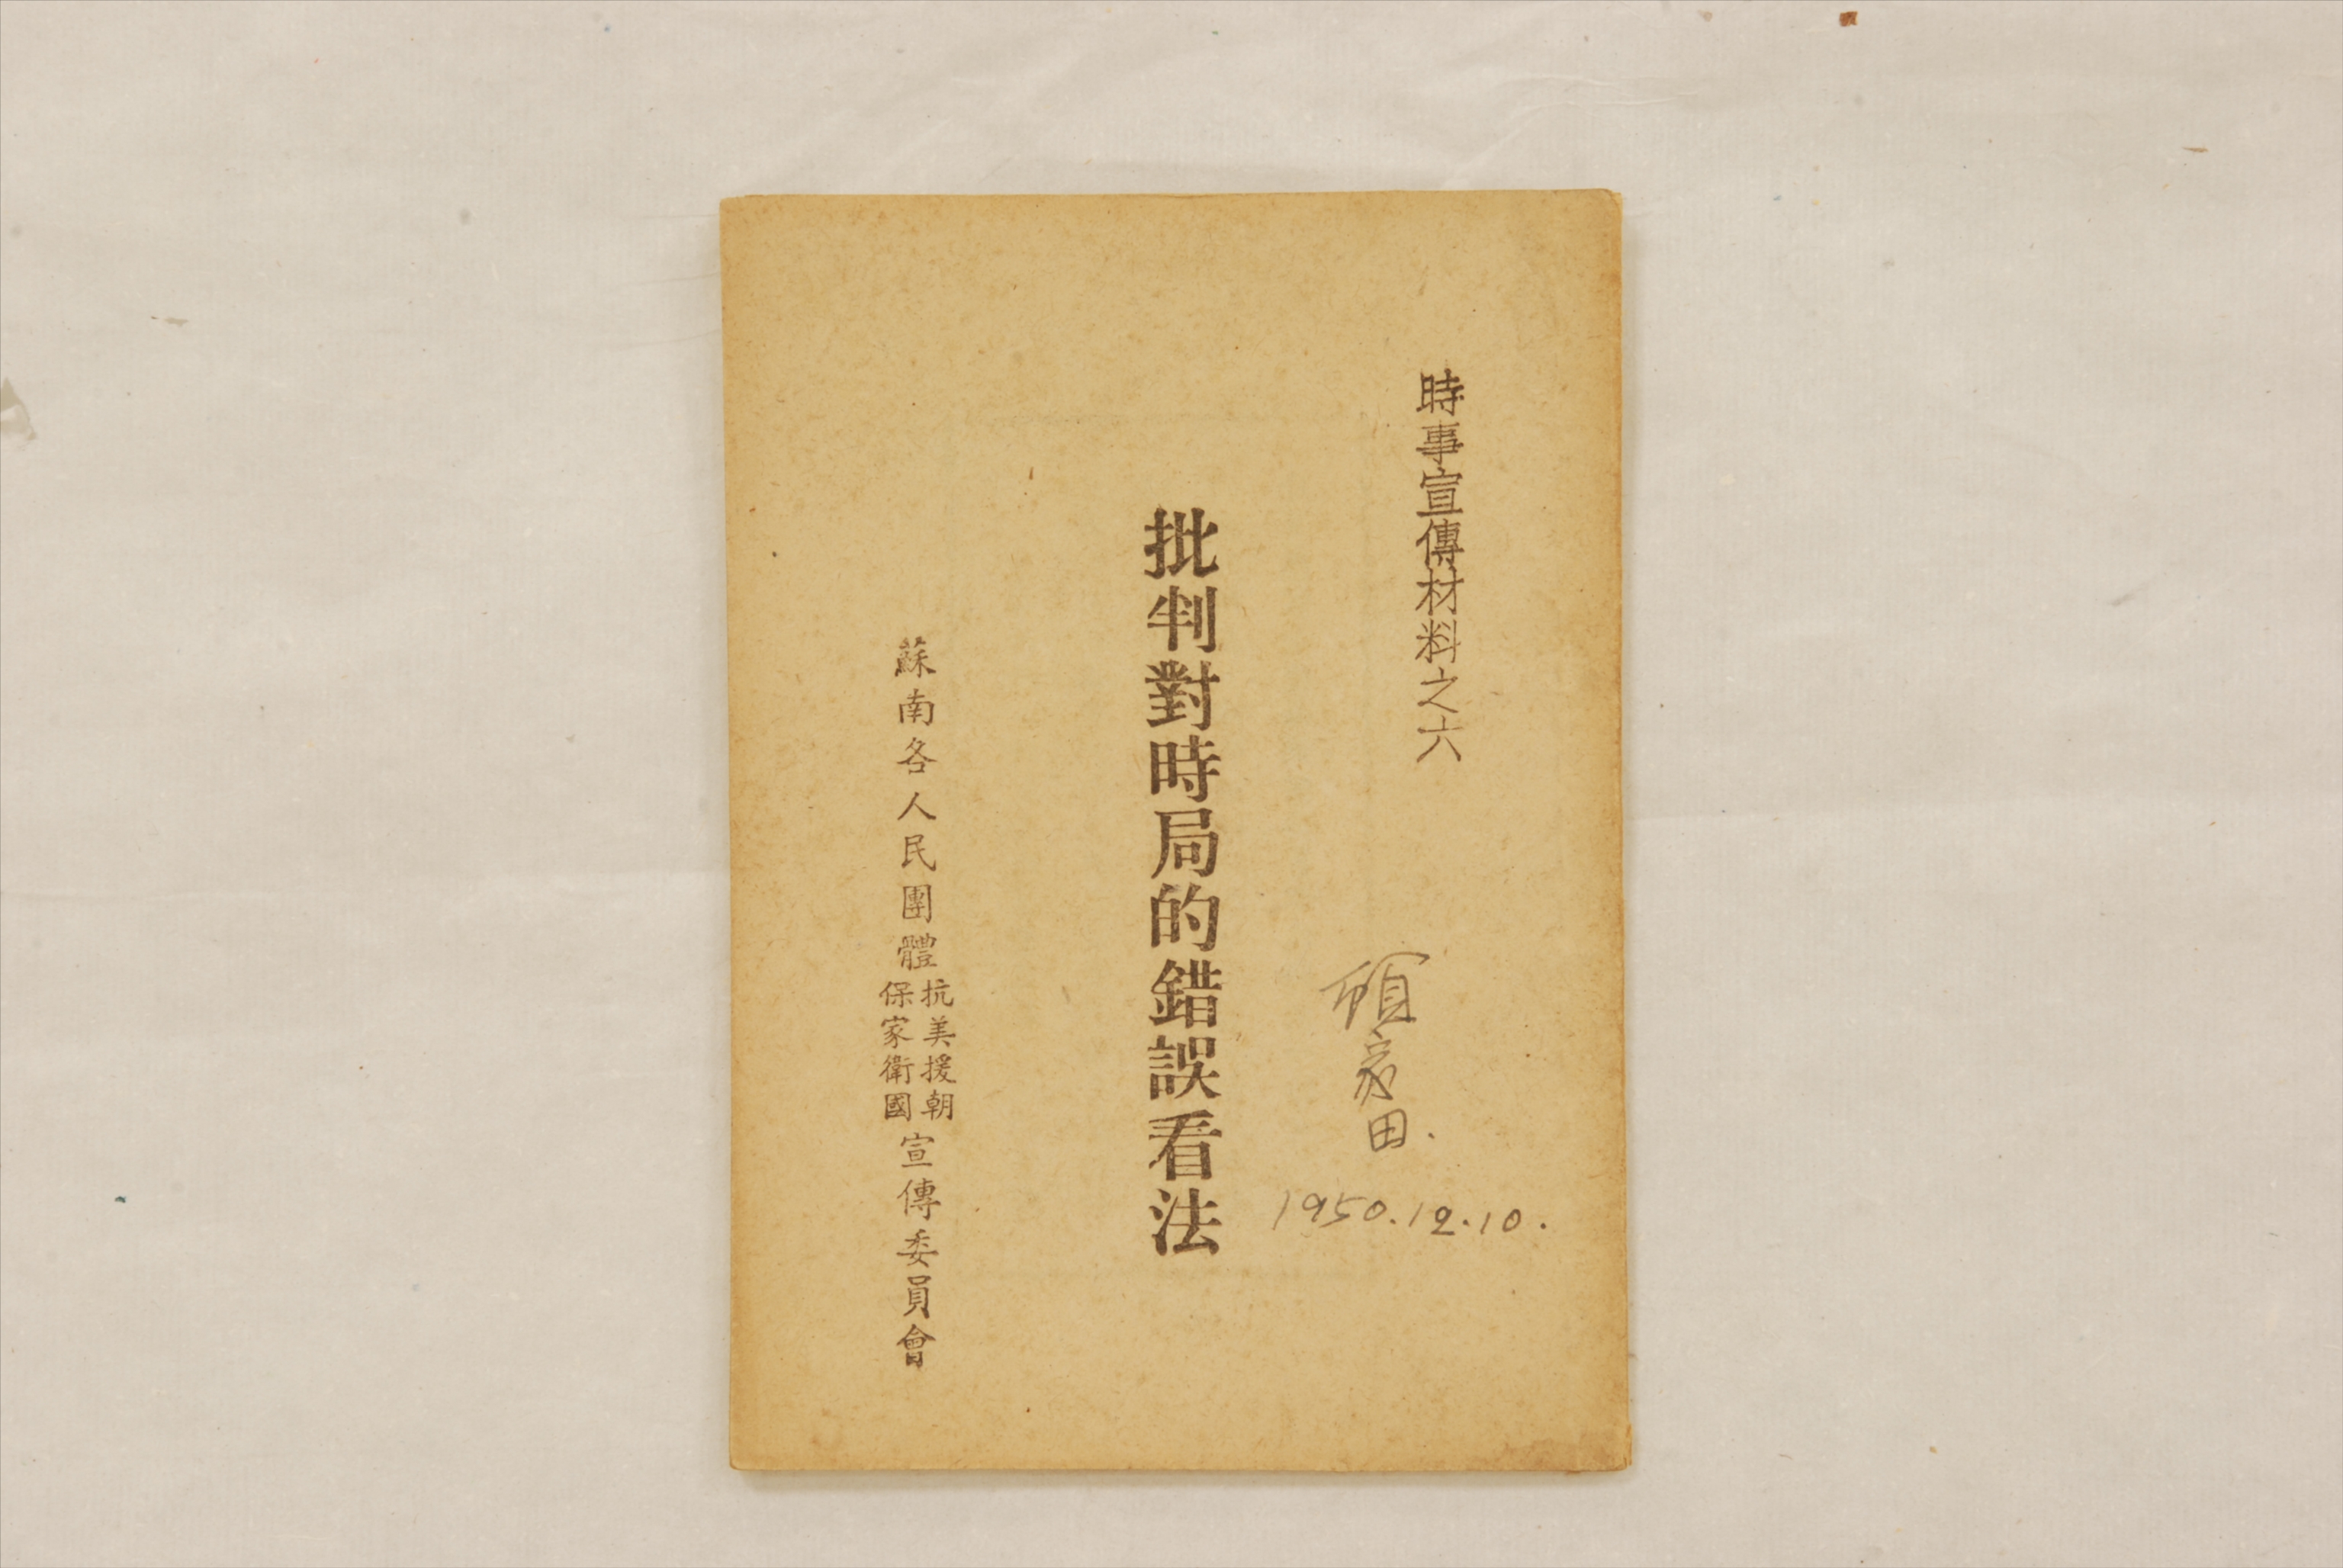 時事宣傳材料之六
田.
1950.12.10.
批判對時局的錯誤看法
蘇南各人民團體抗美援朝保家衛國宣傳委員會